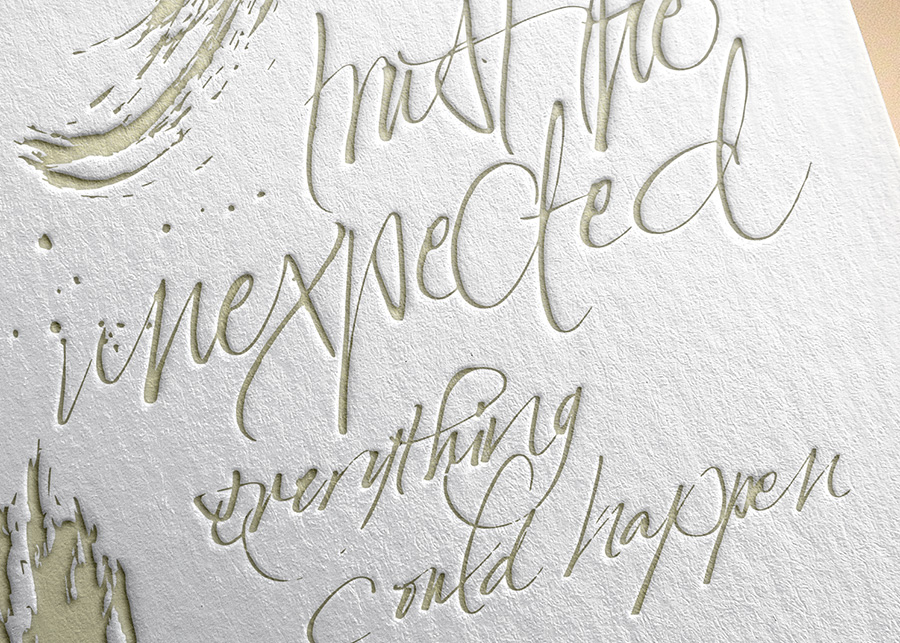 trust the
unexpected
everything
could happen